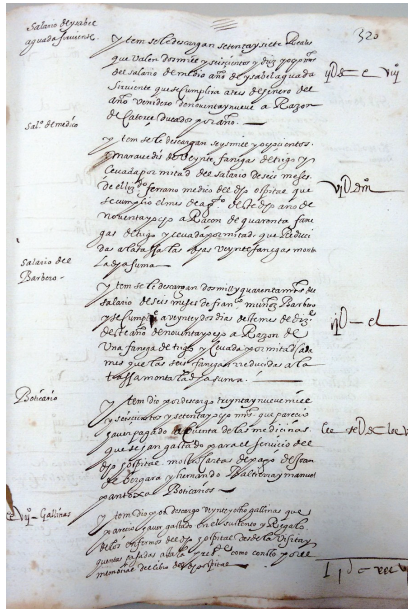 320
Salario de ysabel
aguada sirviente
y tem se le descargan setenta y siete Reales
que valen dos mill y seiscientos y diez y ocho mrs
del salario de medio año de ysabel aguada
sirviente que se cumplira a tres de henero del
año venidero de noventa y nueve a Razon
de catorce ducados por año
Sal.º de medico
y tem se le descargan seys mill y ochocientos
maravedis de veynte fanegas de trigo y
cevada por mitad del salario de seis meses
del liz.do serrano medico del dho ospital que
se cumplio el mes de ag.to deste dho año de
noventa y ocho a Racon de quarenta fane
gas de trigo y cevada por mitad que Reduci
das a la tassa las dhas veynte fanegas monta
la dha suma
Salario del
Barbero
y tem se le descargan dos mill y quarenta mrs del
salario de seis meses de fran.co muñoz Barbero
y se cumplio a veynte y dos dias del mes de diz.e
deste año de noventa y ocho a Razon de
una fanega de trigo y cevada por mitad cada
mes que las seis fanegas rreducidas a la
tassa monta la dha suma
Boticario
y tem dio por descargo treynta y nueve mill
y seiscientos y setenta y ocho mrs que parecio
haver pagado a quenta de las medicinas
que se han gastado para el servicio del
dho ospital mostro cartas de pago de fran.co
de Vergara y hernando y manuel
pantoxa Boticarios
Gallinas
y tem dio por descargo veynte y ocho gallinas que
parecio haver gastado en el sustento y Regalo
de los enfermos del dho ospital desde la visita y
quentas pasadas a la pres.te como consto por el
memorial del libro del dho ospital